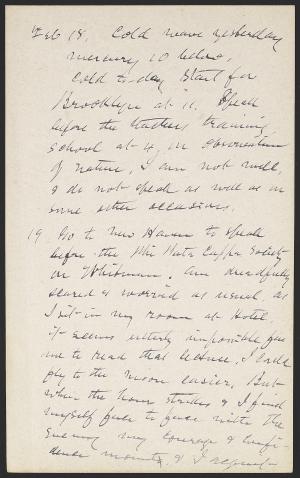 Feb 18. Cold wave yesterday
mercury 10 below.
Cold to-day Start for
Brooklyn at 11. Speak
before the teachers training
school at 4, on observation
of nature, I am not well,
& do not speak as well as on
some other occasions.
19 Go to New Haven to speak
before the Phi Beta Cappa Society
on Whitman. Am dreadfully
scared & worried as usual. as
I sit in my room at Hotel.
it seems utterly impossible for
me to read that lecture. I could
fly to the moon easier. But
when the hour strikes & I find
myself face to face with the
enemy my courage & confi-
dence mounts, & I acquit